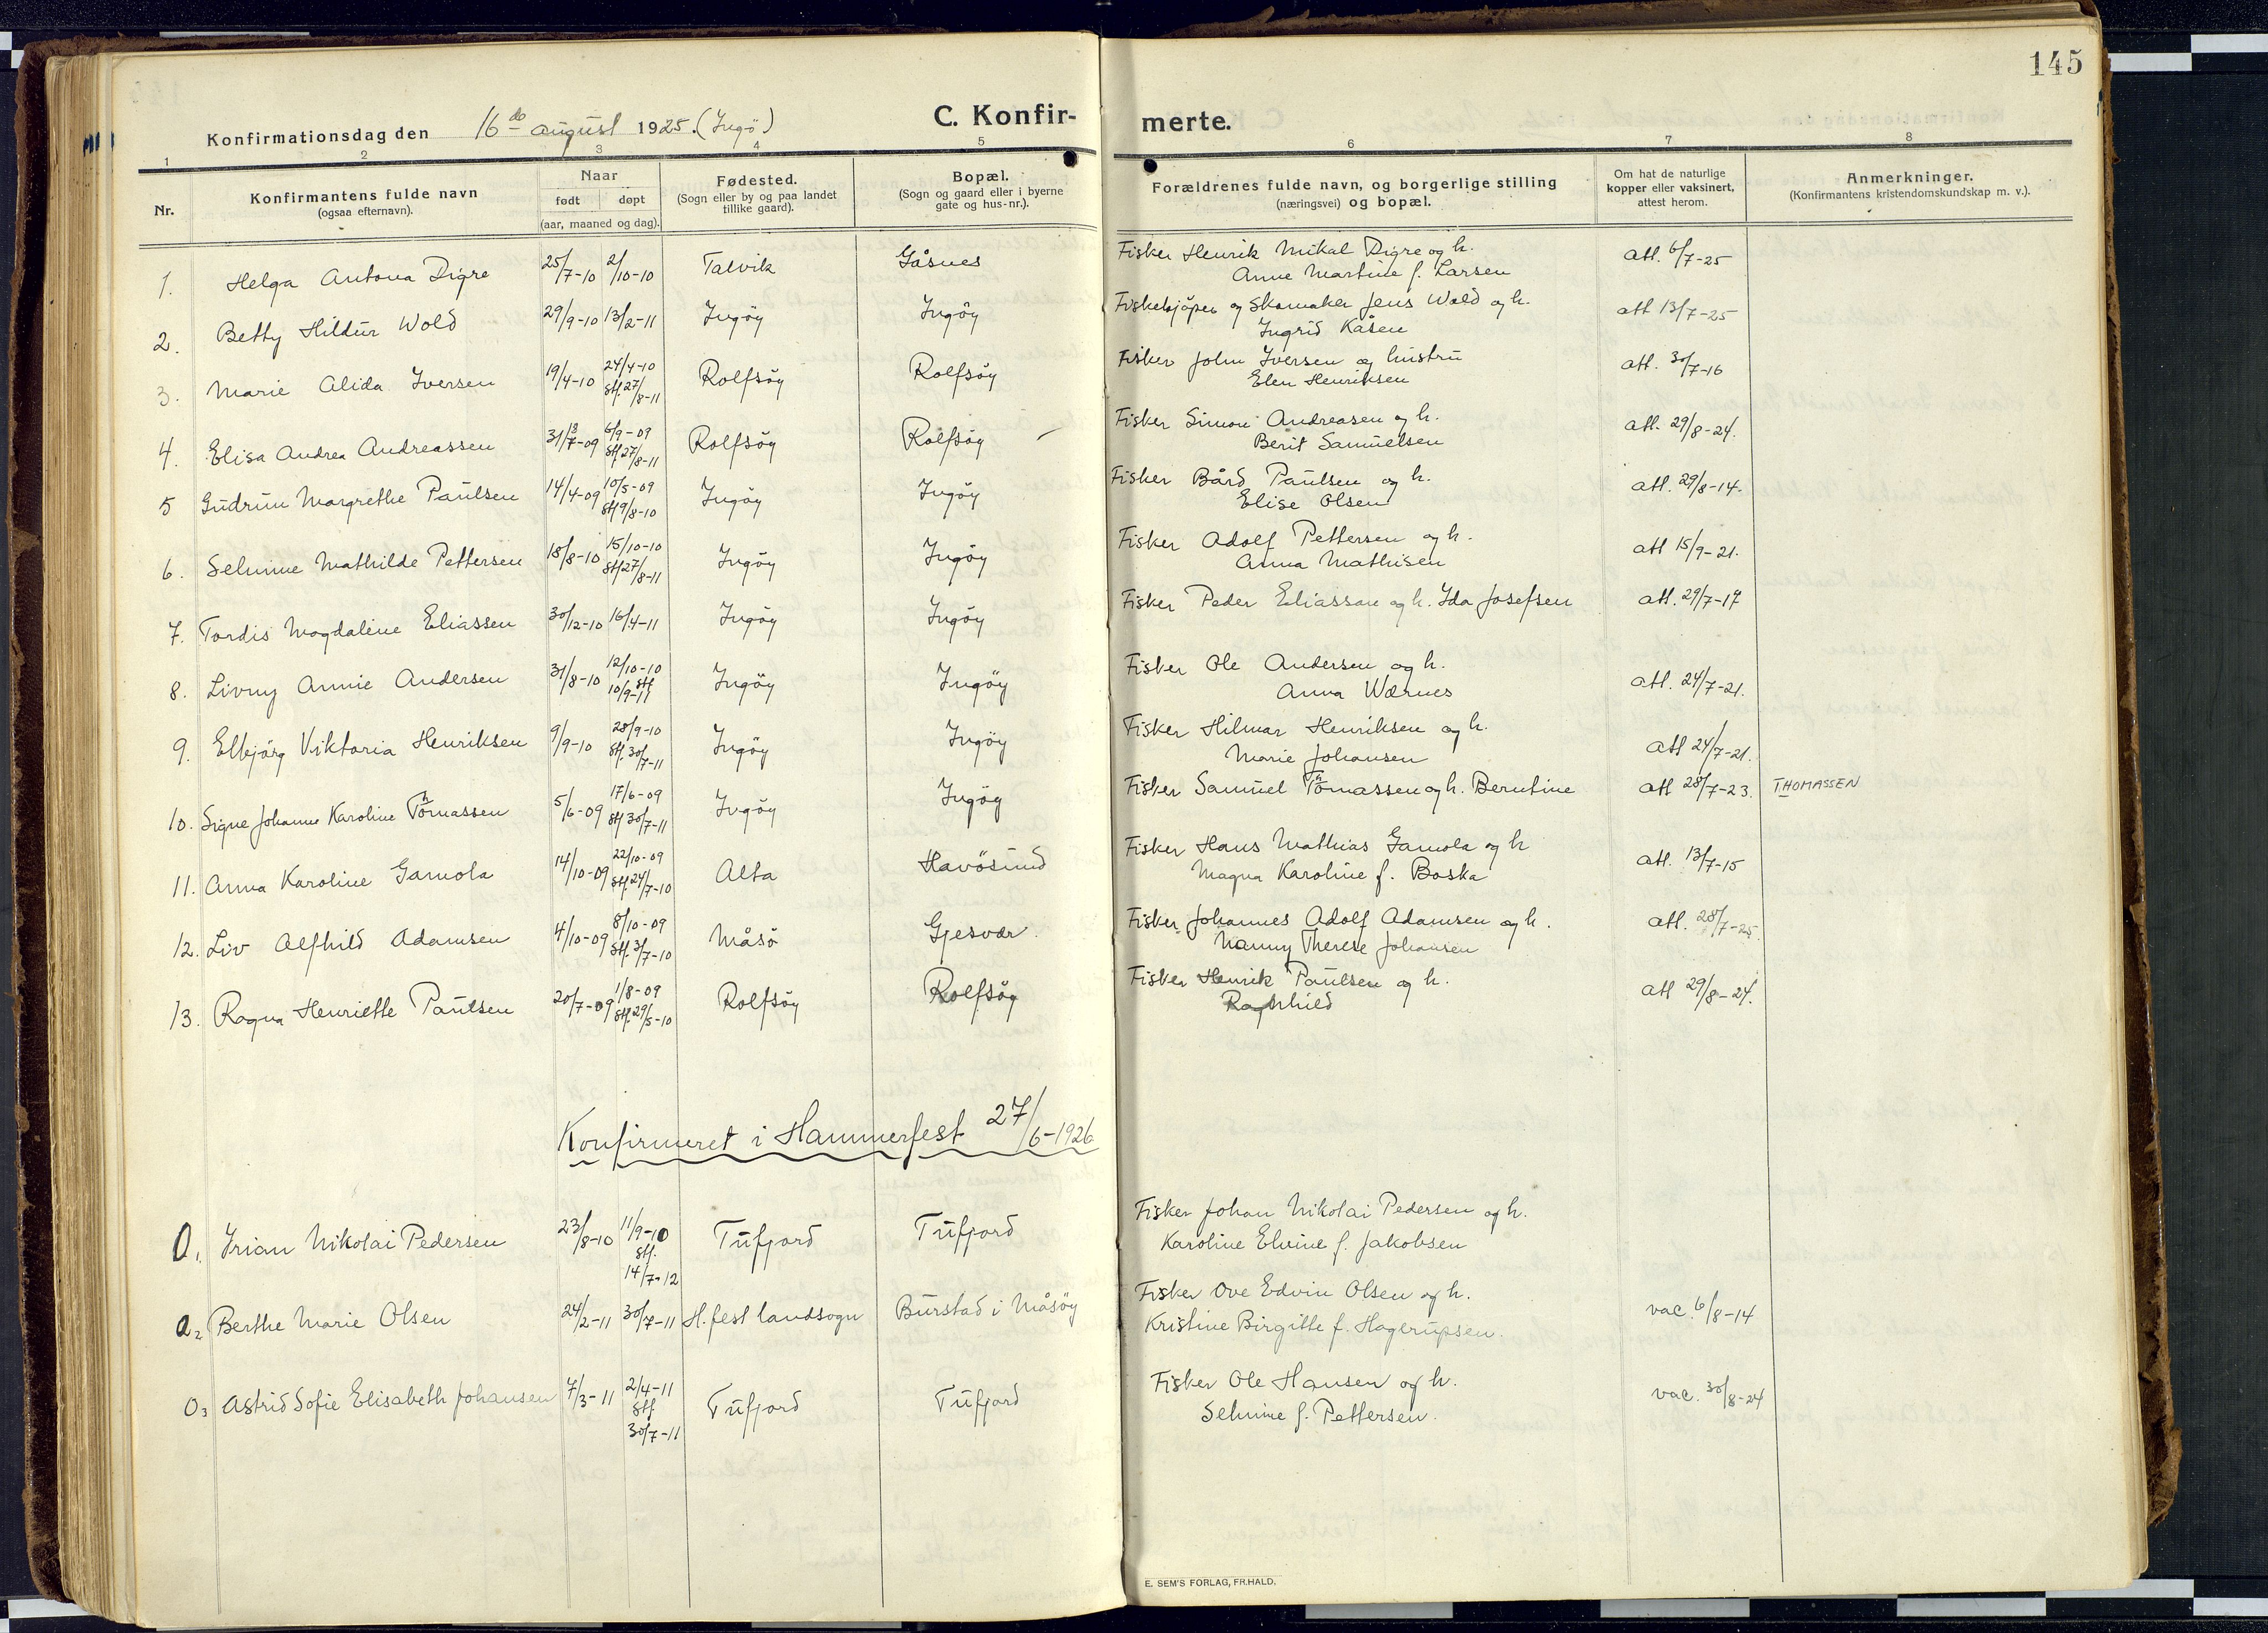 145
Konfirmationsdag den 16de august 1925. (Ingö)
C. Konfir-merte.
1 2 3 4 5 6 7 8
Nr.
Konfirmantens fulde navn
(ogsaa efternavn).
Naar
født døpt
(aar, maaned og dag).
Fødested.
(Sogn eller by og paa landet
tillike gaard).
Bopæl.
(Sogn og gaard eller i byerne
gate og hus-nr.).
Forældrenes fulde navn, og borgerlige stilling
(næringsvei) og bopæl.
Om hat de naturlige
kopper eller vaksinert,
attest herom.
Anmerkninger.
(Konfirmantens kristendomskundskap m. v.).
1. Helga Antona Digre 25/7-10 2/10-10 Talvik Gåsnes Fisker Henrik Mikal Digre og h. att. 6/7-25
Anne Martine f. Larsen
2. Betty Hildur Wold 29/9-10 13/2-11 Ingöy Ingöy Fiskekjöper og Skomaker Jens Wold og h. att 13/7-25
Ingrid Kåsen
3. Marie Alida Iversen 19/4-10 24/4-10 Rolfsöy Rolfsöy Fisker John Iversen og hustru att. 30/7-16
stf. 27/8-11 Elen Henriksen
4. Elisa Andrea Andreassen 31/7-09 6/9-09 Rolfsöy Rolfsöy Fisker Simon Andreasen og h. att. 29/8-24.
stf 27/8-11 Berit Samuelsen
5 Gudrun Margrethe Paulsen 14/4-09 10/5-09 Ingöy Ingöy Fisker Bård Paulsen og h. att. 29/8-14.
stf 9/8-10 Elise Olsen
6. Selmine Mathilde Pettersen 18/8-10 15/10-10 Ingöy Ingöy Fisker Adolf Pettersen og h. att 15/9-21.
stf 27/8-11 Anna Mathisen
7. Tordis Magdaline Eliassen 30/12-10 16/4-11 Ingöy Ingöy Fisker Peder Eliassen og h. Ida Josefsen att. 29/7-19
8. Livny Annie Andersen 31/8-10 12/10-10 Ingöy Ingöy Fisker Ole Andersen og h. att. 24/7-21.
stf 10/9-11 Anna Wærnes
9. Ellbjörg Viktoria Henriksen 9/9-10 28/9-10 Ingöy Ingöy Fisker Hilmar Henriksen og h. att 24/7-21.
stf. 30/7-11 Marie Johansen
10. Signe Johanne Karoline Tomassen 5/6-09 17/6-09 Ingöy Ingöy Fisker Samuel Tomassen og h. Berntine att 28/7-23. THOMASSEN
stf 30/7-11
11. Anna Karoline Gamola 14/10-09 22/10-09 Alta Havösund Fisker Hans Mathias Gamola og h att. 13/7-15
stf. 24/7-10 Magna Karoline f. Boska
12. Liv Alfhild Adamsen 4/10-09 8/10-09 Måsö Gjesvær. Fisker Johannes Adolf Adamsen og h. att. 28/7-25.
stf. 3/7-10 Nanny Therese Johansen
13. Ragna Henriette Paulsen 20/7-09 1/8-09 Rolfsöy Rolfsöy Fisker Henrik Paulsen og h. att 29/8-24.
stf. 29/5-10 Ragnhild
Konfirmeret i Hammerfest 27/6-1926
0, Irian Nikolai Pedersen 23/8-10 11/9-10 Tufjord Tufjord Fisker Johan Nikolai Pedersen og h.
stf. 14/7-12 Karoline Elvine f. Jakobsen
0 2 Berthe Marie Olsen 24/2-11 30/7-11 H.fest landsogn Burstad i Måsöy Fisker Ove Edvin Olsen og h. vac. 6/8-14
Kristine Birgitte f. Hagerupsen.
0 3 Astrid Sofie Elisabeth Johansen 7/3-11 2/4-11 Tufjord Tufjord Fisker Ole Hansen og h. vac. 30/8-24
stf 30/7-11 Selmine f. Pettersen.
E. SEM'S FORLAG, FR.HALD.